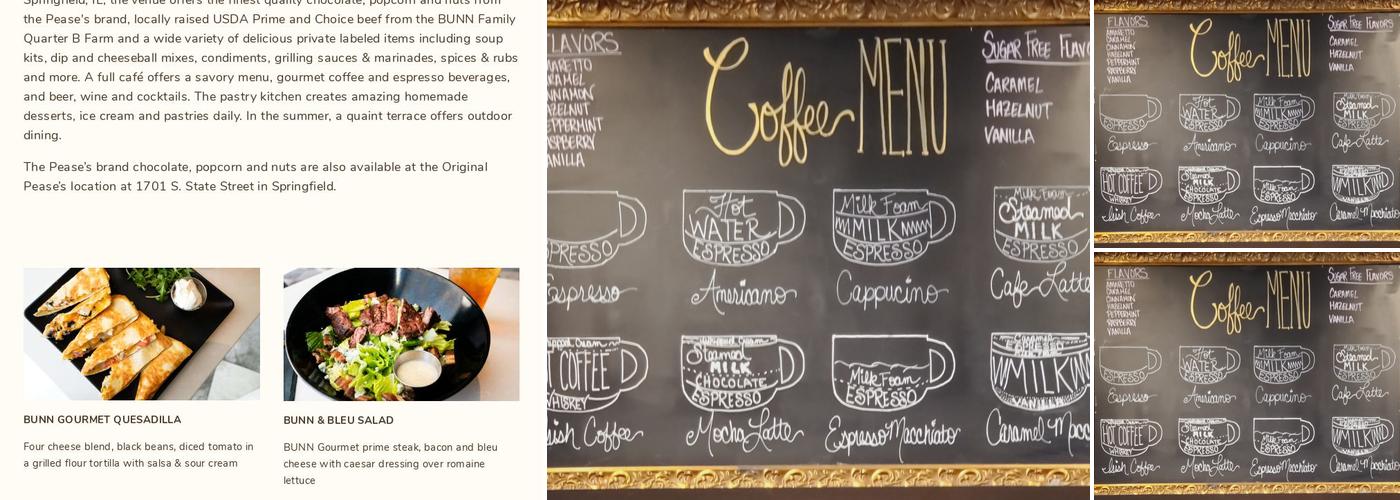 Springfield, IL, the venue offers the finest quality chocolate, popcorn and nuts from
the Pease's brand, locally raised USDA Prime and Choice beef from the BUNN Family
Quarter B Farm and a wide variety of delicious private labeled items including soup
kits, dip and cheeseball mixes, condiments, grilling sauces & marinades, spices & rubs
and more. A full café offers a savory menu, gourmet coffee and espresso beverages,
and beer, wine and cocktails. The pastry kitchen creates amazing homemade
desserts, ice cream and pastries daily. In the summer, a quaint terrace offers outdoor
dining.
The Pease's brand chocolate, popcorn and nuts are also available at the Original
Pease's location at 1701 S. State Street in Springfield.
BUNN GOURMET QUESADILLA
Four cheese blend, black beans, diced tomato in
a grilled flour tortilla with salsa & sour cream
BUNN & BLEU SALAD
BUNN Gourmet prime steak, bacon and bleu
cheese with caesar dressing over romaine
lettuce
Coffee MENU
LAVORS
MARETTO
RAMEL
NNAMON
AZELNUT
EPPERMINT
ASPBERRY
ANILLA
SUGAR FREE FLAVO
CARAMEL
HAZELNUT
VANILLA
SPRESSO
Espresso
Hot
WATER
ESPRESSO
Americano
Milk Foam
MILK
ESPRESSO
Cappucino
Milk Foam
Steamed
MILK
ESPRESSO
Cafe Latte
COFFEE
WHISKEY
ish Coffee
Whipped Cream
Steamed
MILK
CHOCOLATE
ESPRESSO
Mocha Latte
Milk Foam
ESPRESSO
Espresso Macchiato
ESPRESSO
MILK
Caramel Macc
FLAVORS
AMARETTO
CARAMEL
CINNAMON
HAZELNUT
PEPPERMINT
RASPBERRY
VANILLA
Coffee MENU
SUGAR FREE FLAVORS
CARAMEL
HAZELNUT
VANILLA
ESPRESSO
Espresso
Hot
WATER
ESPRESSO
Americano
Milk Foam
MILK
ESPRESSO
Cappucino
Steamed
MILK
ESPRESSO
Cafe Latte
HOT COFFEE
WHISKEY
Irish Coffee
Steamed
MILK
CHOCOLATE
ESPRESSO
Mocha Latte
Milk Foam
ESPRESSO
Espresso Macchiato
MILK
Caramel Macchiato
FLAVORS
AMARETTO
CARAMEL
CINNAMON
HAZELNUT
PEPPERMINT
RASPBERRY
VANILLA
Coffee MENU
SUGAR FREE FLAVORS
CARAMEL
HAZELNUT
VANILLA
ESPRESSO
Espresso
Hot
WATER
ESPRESSO
Americano
Milk Foam
MILK
ESPRESSO
Cappucino
Steamed
MILK
ESPRESSO
Cafe Latte
HOT COFFEE
WHISKEY
Irish Coffee
Steamed
MILK
CHOCOLATE
ESPRESSO
Mocha Latte
Milk Foam
ESPRESSO
Espresso Macchiato
MILK
Caramel Macchiato